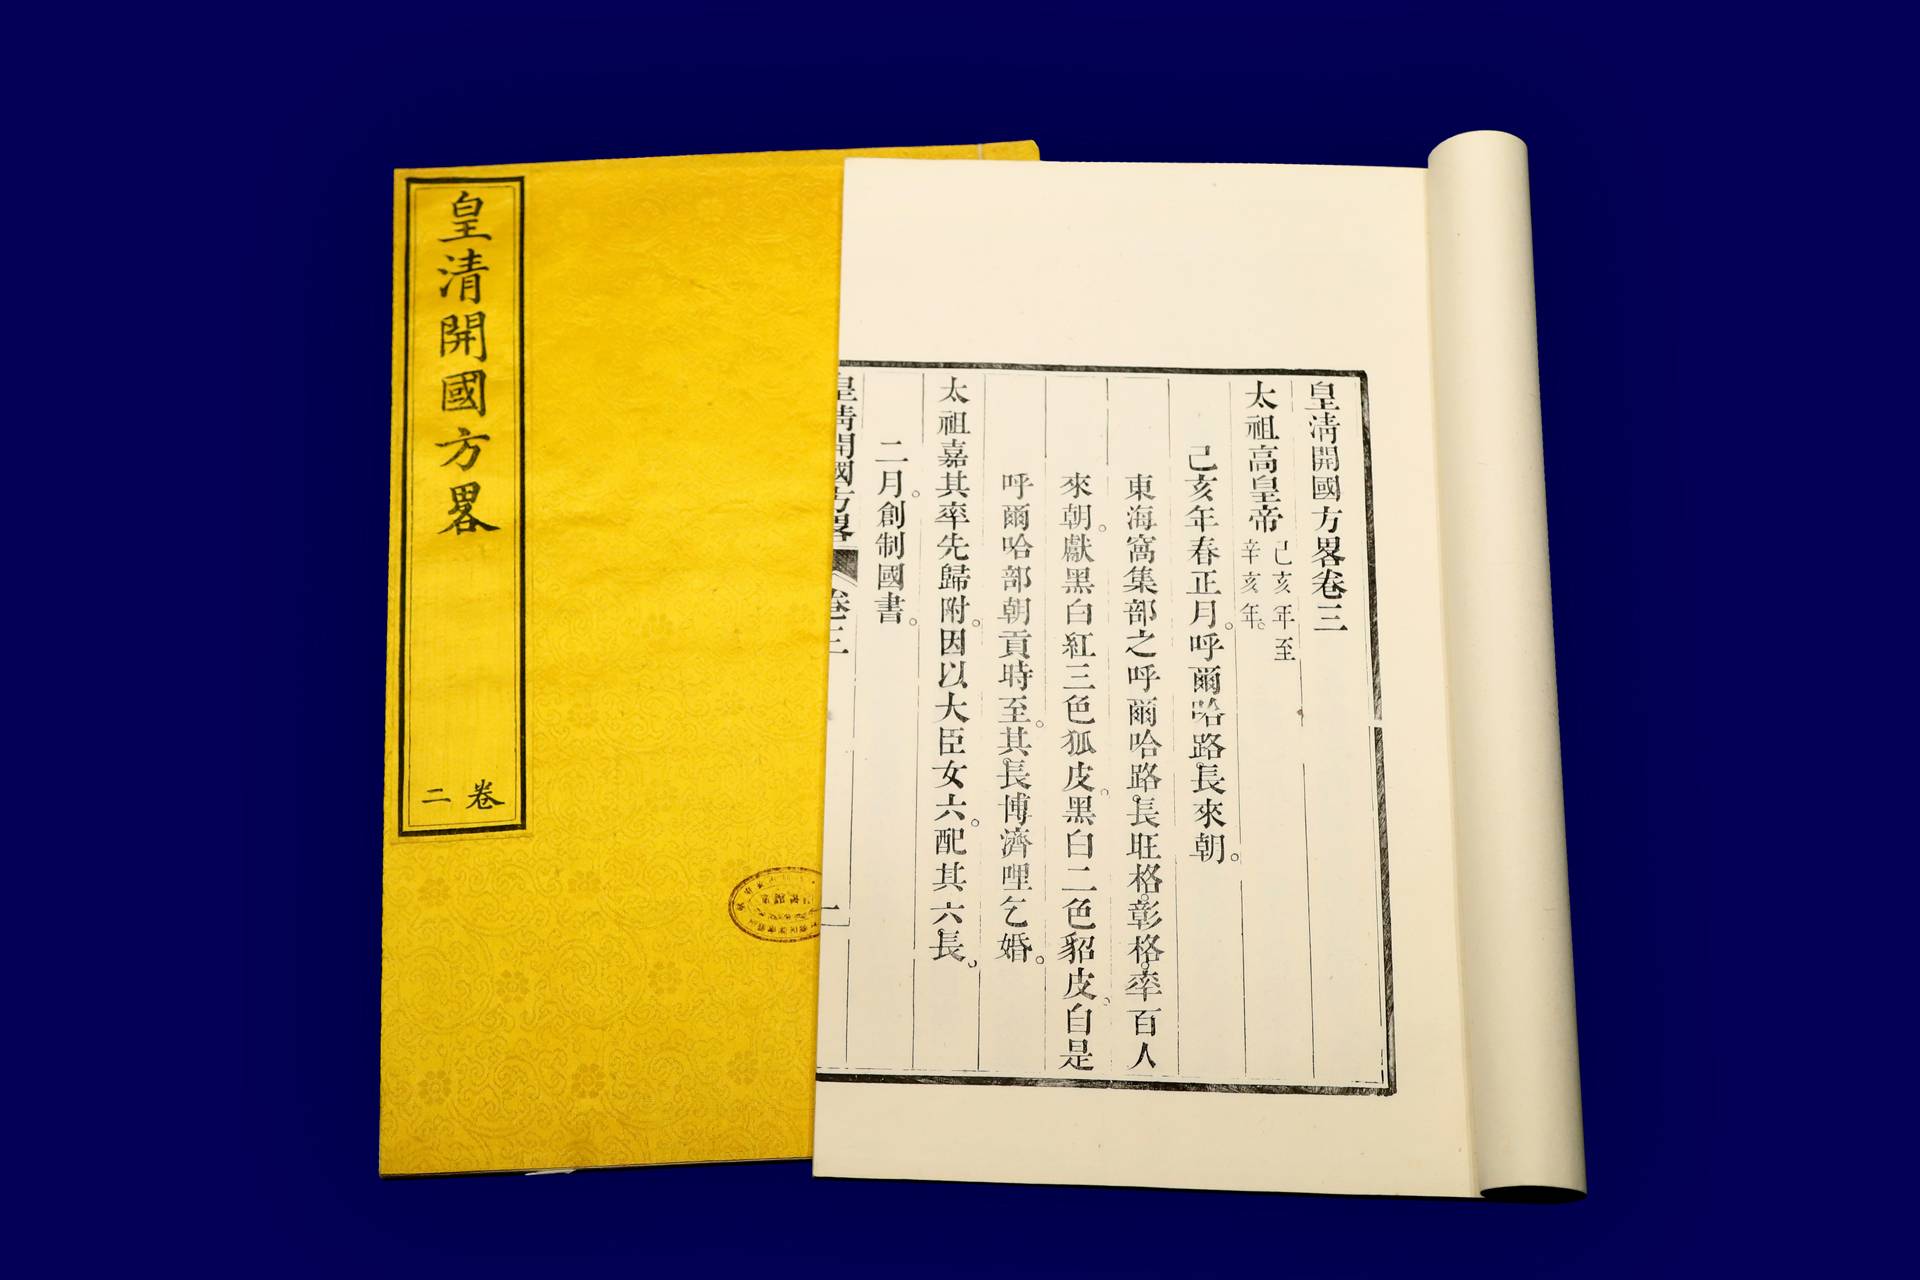 皇清開國方畧
卷二
皇清開國方畧卷三
太祖高皇帝
己亥年至
辛亥年。
己亥年春正月。呼爾哈路長來朝。
東海窩集部之呼爾哈路長旺格。彰格。率百人
來朝。獻黑白紅三色狐皮。黑白二色貂皮。自是
呼爾哈部朝貢時至。其長博濟哩乞婚。
太祖嘉其率先歸附。因以大臣女六。配其六長。
二月。創制國書。
皇清開國方畧
卷三
一